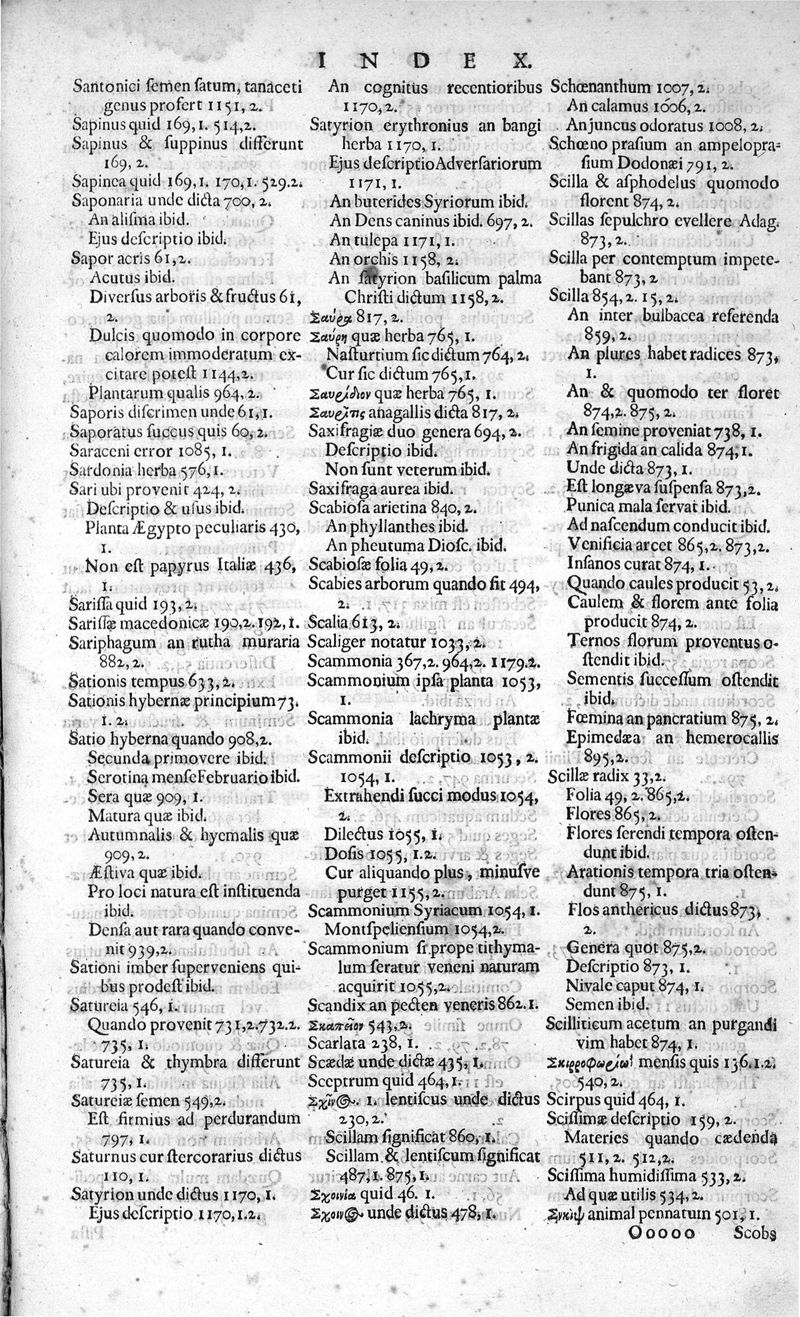 INDEX.
Santonici ſemen ſatum, tanaceti
genus profert 1151, 2.
Sapinus quid 169, 1. 514, 2.
Sapinus & ſuppinus differunt
169, 2.
Sapinea quid 169, 1. 170, 1. 529. 2.
Saponaria unde dicta 700, 2.
An aliſma ibid.
Ejus deſcriptio ibid.
Sapor acris 61, 2.
Acutus ibid.
Diverſus arboris & fructus 61,
2.
Dulcis quomodo in corpore
calorem immoderatum ex-
citare poteſt 1144, 2.
Plantarum qualis 964, 2.
Saporis diſcrimen unde 61, 1.
Saporatus ſuccus quis 60, 2.
Saraceni error 1085, 1.
Sardonia herba 576, 1.
Sari ubi provenit 424, 2.
Deſcriptio & uſus ibid.
Planta Ægypto peculiaris 430,
1.
Non eſt papyrus Italiæ 436,
1.
Sariſſa quid 193, 2.
Sariſſæ macedonicæ 190, 2. 192, 1.
Sariphagum an rutha muraria
882, 2.
Sationis tempus 633, 2.
Sationis hybernæ principium 73.
1. 2.
Satio hyberna quando 908, 2.
Secunda primovere ibid.
Serotina menſe Februario ibid.
Sera quæ 909, 1.
Matura quæ ibid.
Autumnalis & hyemalis quæ
909, 2.
Æſtiva quæ ibid.
Pro loci natura eſt inſtituenda
ibid.
Denſa aut rara quando conve-
nit 939, 2.
Sationi imber ſuperveniens qui-
bus prodeſt ibid.
Satureia 546, 1.
Quando provenit 731, 2. 732. 2.
735, 1.
Satureia & thymbra differunt
735, 1.
Satureiæ ſemen 549, 2.
Eſt firmius ad perdurandum
797, 1.
Saturnus cur ſtercorarius dictus
110, 1.
Satyrion unde dictus 1170, 1.
Ejus deſcriptio 1170, 1. 2.
An cognitus recentioribus
1170, 2.
Satyrion erythronius an bangi
herba 1170, 1.
Ejus deſcriptio Adverſariorum
1171, 1.
An buterides Syriorum ibid.
An Dens caninus ibid. 697, 2.
An tulepa 1171, 1.
An orchis 1158, 2.
An ſatyrion baſilicum palma
Chriſti dictum 1158, 2.
Σαύρα 817, 2.
Σαύρη quæ herba 765, 1.
Naſturtium ſic dictum 764, 2.
Cur ſic dictum 765, 1.
Σαυρίδιον quæ herba 765, 1.
Σαυρίτις anagallis dicta 817, 2.
Saxifragiæ duo genera 694, 2.
Deſcriptio ibid.
Non ſunt veterum ibid.
Saxifraga aurea ibid.
Scabioſa arietina 840, 2.
An phyllanthes ibid.
An pheutuma Dioſc. ibid.
Scabioſæ folia 49, 2.
Scabies arborum quando fit 494,
2.
Scalia 613, 2.
Scaliger notatur 1033, 2.
Scammonia 367, 2. 964, 2. 1179. 2.
Scammonium ipſa planta 1053,
1.
Scammonia lachryma plantæ
ibid.
Scammonii deſcriptio 1053, 2.
1054, 1.
Extrahendi ſucci modus 1054,
2.
Dilectus 1055, 1.
Doſis 1055, 1. 2.
Cur aliquando plus, minuſve
purget 1155, 2.
Scammonium Syriacum 1054, 1.
Montſpelienſium 1054, 2.
Scammonium ſi prope tithyma-
lum ſeratur veneni naturam
acquirit 1055, 2.
Scandix an pecten veneris 862. 1.
Σκαπεῖον 543, 2.
Scarlata 238, 1.
Scædæ unde dictæ 435, 1.
Sceptrum quid 464, 1.
Σχῖνος. 1. lentiſcus unde dictus
230, 2.
Scillam ſignificat 860, 1.
Scillam & lentiſcum ſignificat
487, 1. 875, 1.
Σχοινία quid 46. 1.
Σχοῖνος unde dictus 478, 1.
Schœnanthum 1007, 2.
An calamus 1006, 2.
An juncus odoratus 1008, 2.
Schœno praſium an ampelopra-
ſium Dodonæi 791, 2.
Scilla & aſphodelus quomodo
florent 874, 2.
Scillas ſepulchro evellere Adag.
873, 2.
Scilla per contemptum impete-
bant 873, 2
Scilla 854, 2. 15, 2.
An inter bulbacea referenda
859, 2.
An plures habet radices 873,
1.
An & quomodo ter floret
874, 2. 875, 2.
An ſemine proveniat 738, 1.
An frigida an calida 874, 1.
Unde dicta 873, 1.
Eſt longæva ſuſpenſa 873, 2.
Punica mala ſervat ibid.
Ad naſcendum conducit ibid.
Veneficia arcet 865, 2. 873, 2.
Inſanos curat 874, 1.
Quando caules producit 53, 2.
Caulem & florem ante folia
producit 874, 2.
Ternos florum proventus o-
ſtendit ibid.
Sementis ſucceſſum oſtendit
ibid.
Fœmina an pancratium 875, 2.
Epimedæa an hemerocallis
895, 2.
Scillæ radix 33, 2.
Folia 49, 2. 865, 2.
Flores 865, 2.
Flores ſerendi tempora oſten-
dunt ibid.
Arationis tempora tria oſten-
dunt 875, 1.
Flos anthericus dictus 873,
2.
Genera quot 875, 2.
Deſcriptio 873, 1.
Nivale caput 874, 1.
Semen ibid.
Scilliticum acetum an purgandi
vim habet 874, 1.
menſis quis 136. 1. 2.
540, 2.
Scirpus quid 464, 1.
Sciſſimæ deſcriptio 159, 2.
Materies quando cædenda
511, 2. 512, 2.
Sciſſima humidiſſima 533, 2.
Ad quæ utilis 534, 2.
animal pennatum 501, 1.
Ooooo Scobs